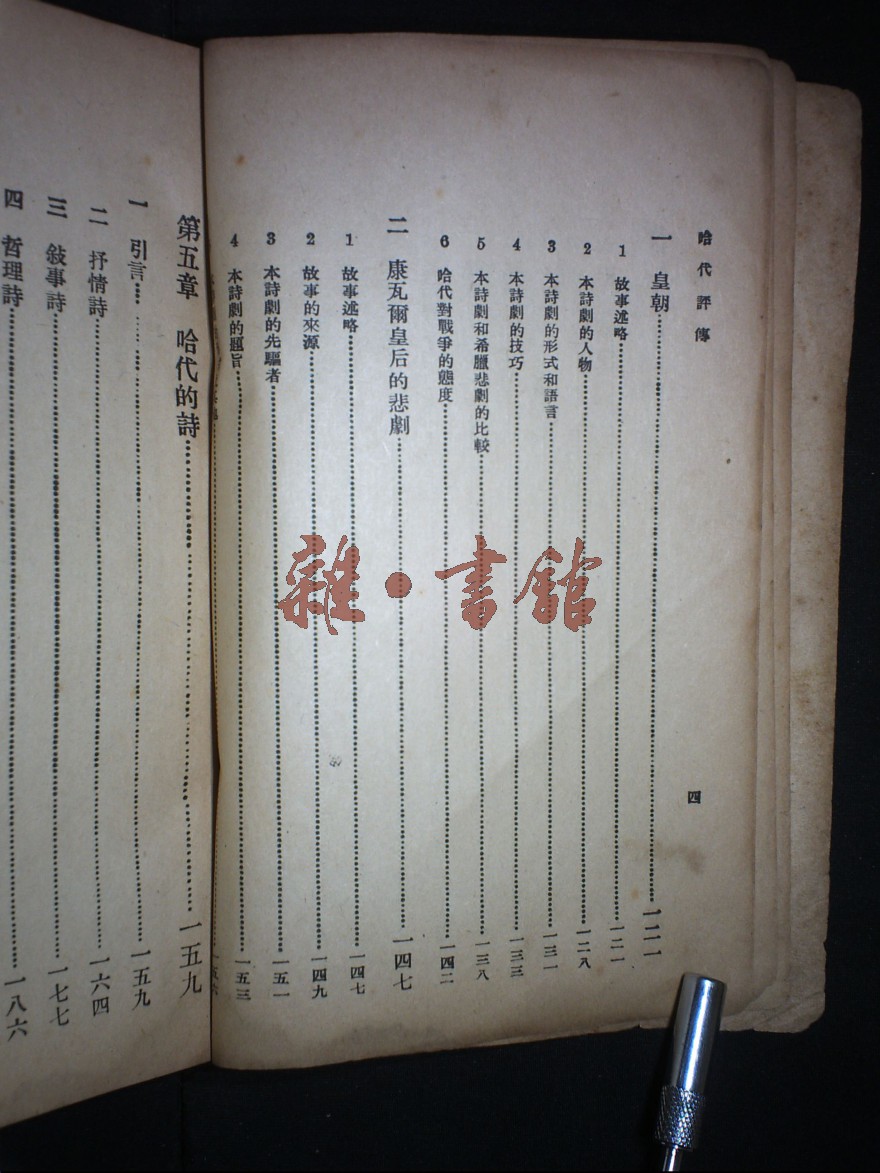 哈代評傳
四
一 皇朝 一二一
1 故事述略 一二一
2 本詩劇的人物 一二八
3 本詩劇的形式和語言 一三一
4 本詩劇的技巧 一三三
5 本詩劇和希臘悲劇的比較 一三八
6 哈代對戰爭的態度 一四二
二 康瓦爾皇后的悲劇 一四七
1 故事述略 一四七
2 故事的來源 一四九
3 本詩劇的先驅者 一五一
4 本詩劇的題旨 一五三
第五章 哈代的詩 一五九
一 引言 一五九
二 抒情詩 一六四
三 敍事詩 一七七
四 哲理詩 一八六
雜·書館